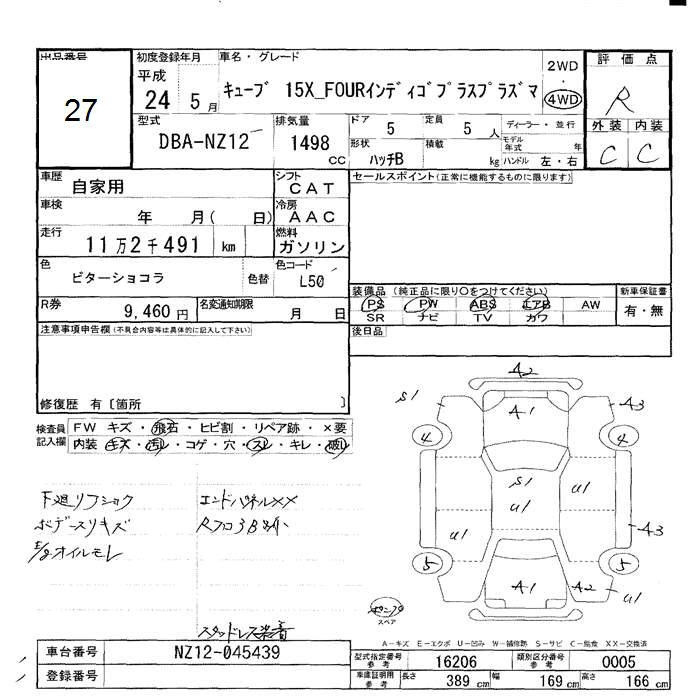 出品番号
27
初度登録年月
平成
24 5 月
車名・グレード
キューブ 15X_FOURインディゴプラスプラズマ
2WD
・
4WD
評価点
R
外装 内装
C C
型式
DBA-NZ12
排気量
1498
CC
ドア 5
定員 5 人
形状 ハッチB
積載 kg
ディーラー・並行
モデル年式 年
ハンドル 左・右
車歴 自家用
シフト CAT
車検 年 月( 日)
冷房 AAC
走行 11万2千491 km
燃料 ガソリン
色 ビターショコラ 色替
色コード L50
R券 9,460 円
名変通知期限 月 日
セールスポイント(正常に機能するものに限ります)
装備品 (純正品に限り○をつけてください)
PS PW ABS エアB AW
SR ナビ TV カワ
新車保証書
有・無
後日品
注意事項申告欄(不具合内容等は具体的に記入して下さい)
修復歴 有〔箇所 〕
検査員記入欄
FW キズ・飛石・ヒビ割・リペア跡・×要
内装 キズ・汚れ・コゲ・穴・スレ・キレ・破れ
下廻リフショク
ボデースリキズ
E/gオイルモレ
エンドパネルXX
スタッドレス装着
A2
S1
A1
A3
4
4
S1
U1
U1
U1
A3
5
5
A1
A2
U1
スペア
A-キズ E-エクボ U-凹み W-補修跡 S-サビ C-腐食 XX-交換済
車台番号 NZ12-045439
登録番号
型式指定番号参考 16206
類別区分番号参考 0005
車庫証明用参考
長さ 389 cm
幅 169 cm
高さ 166 cm